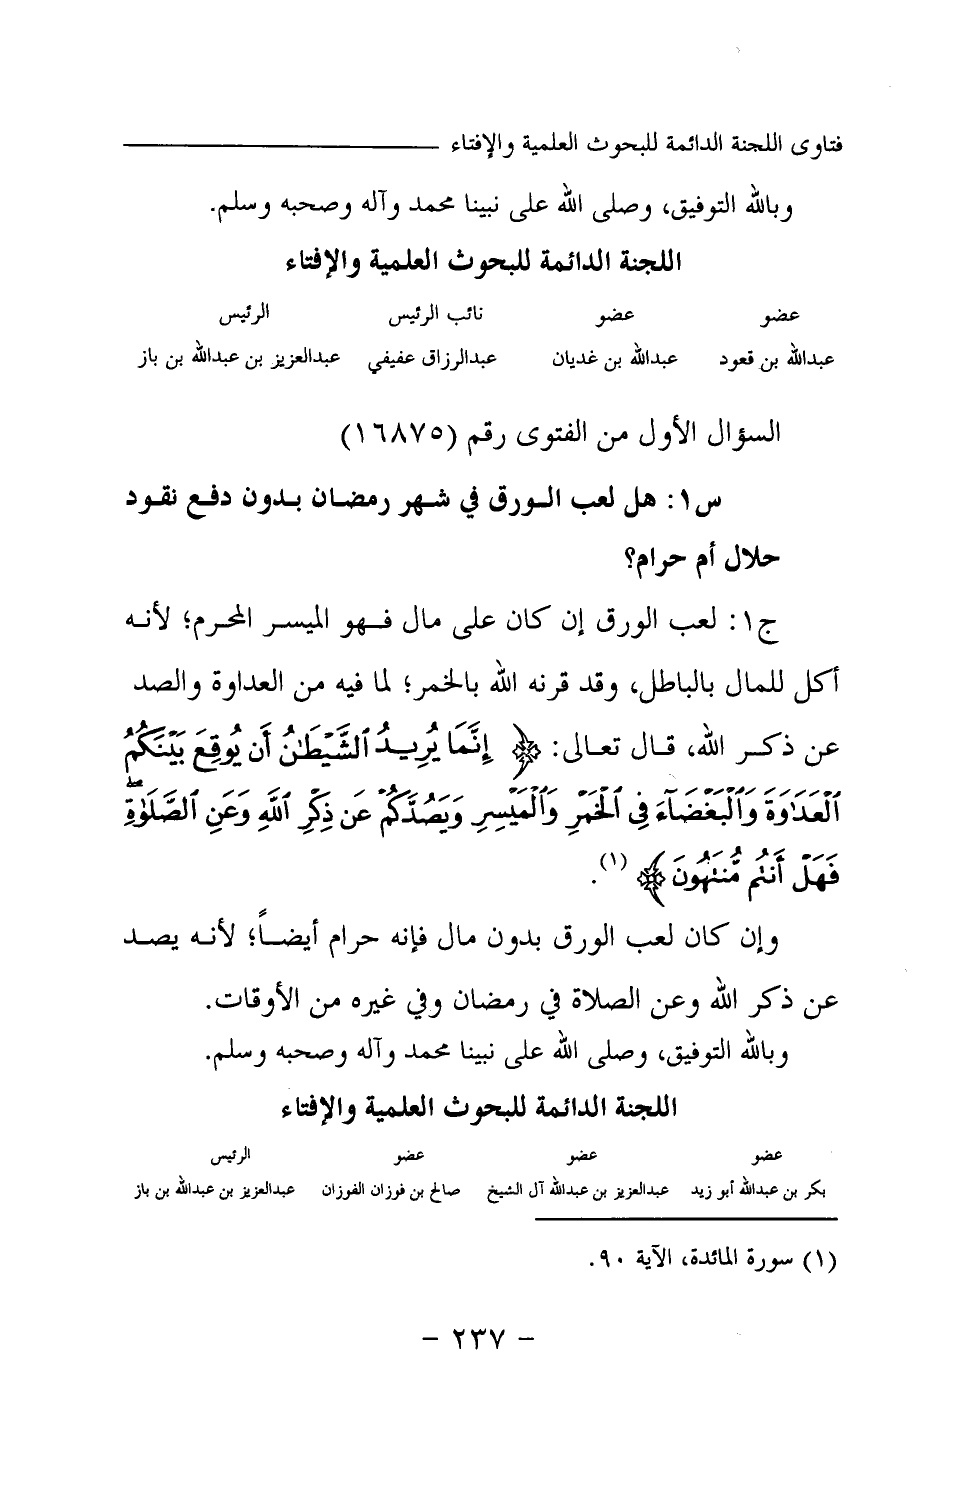 فتاوى اللجنة الدائمة للبحوث العلمية والإفتاء
وبالله التوفيق، وصلى الله على نبينا محمد وآله وصحبه وسلم.
اللجنة الدائمة للبحوث العلمية والإفتاء
عضو عضو نائب الرئيس الرئيس
عبدالله بن قعود عبدالله بن غديان عبدالرزاق عفيفي عبدالعزيز بن عبدالله بن باز
السؤال الأول من الفتوى رقم (١٦٨٧٥)
س١: هل لعب الورق في شهر رمضان بدون دفع نقود
حلال أم حرام؟
ج١: لعب الورق إن كان على مال فهو الميسر المحرم؛ لأنه
أكل للمال بالباطل، وقد قرنه الله بالخمر؛ لما فيه من العداوة والصد
عن ذكر الله، قال تعالى: ﴿ إِنَّمَا يُرِيدُ ٱلشَّيْطَٰنُ أَن يُوقِعَ بَيْنَكُمُ
ٱلْعَدَٰوَةَ وَٱلْبَغْضَآءَ فِى ٱلْخَمْرِ وَٱلْمَيْسِرِ وَيَصُدَّكُمْ عَن ذِكْرِ ٱللَّهِ وَعَنِ ٱلصَّلَوٰةِ ۖ
فَهَلْ أَنتُم مُّنتَهُونَ ﴾ (١).
وإن كان لعب الورق بدون مال فإنه حرام أيضاً؛ لأنه يصد
عن ذكر الله وعن الصلاة في رمضان وفي غيره من الأوقات.
وبالله التوفيق، وصلى الله على نبينا محمد وآله وصحبه وسلم.
اللجنة الدائمة للبحوث العلمية والإفتاء
عضو عضو عضو الرئيس
بكر بن عبدالله أبو زيد عبدالعزيز بن عبدالله آل الشيخ صالح بن فوزان الفوزان عبدالعزيز بن عبدالله بن باز
(١) سورة المائدة، الآية ٩٠.
- ٢٣٧ -